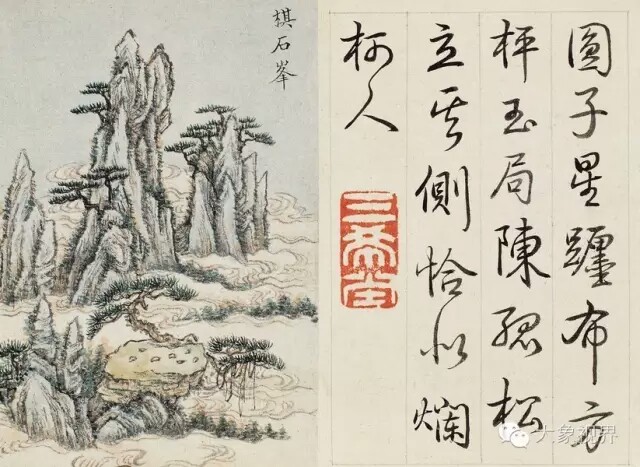 圓子星躔布方
枰玉局陳孤松
立其側恰似爛
柯人
三希堂
棋石峯
大象视界